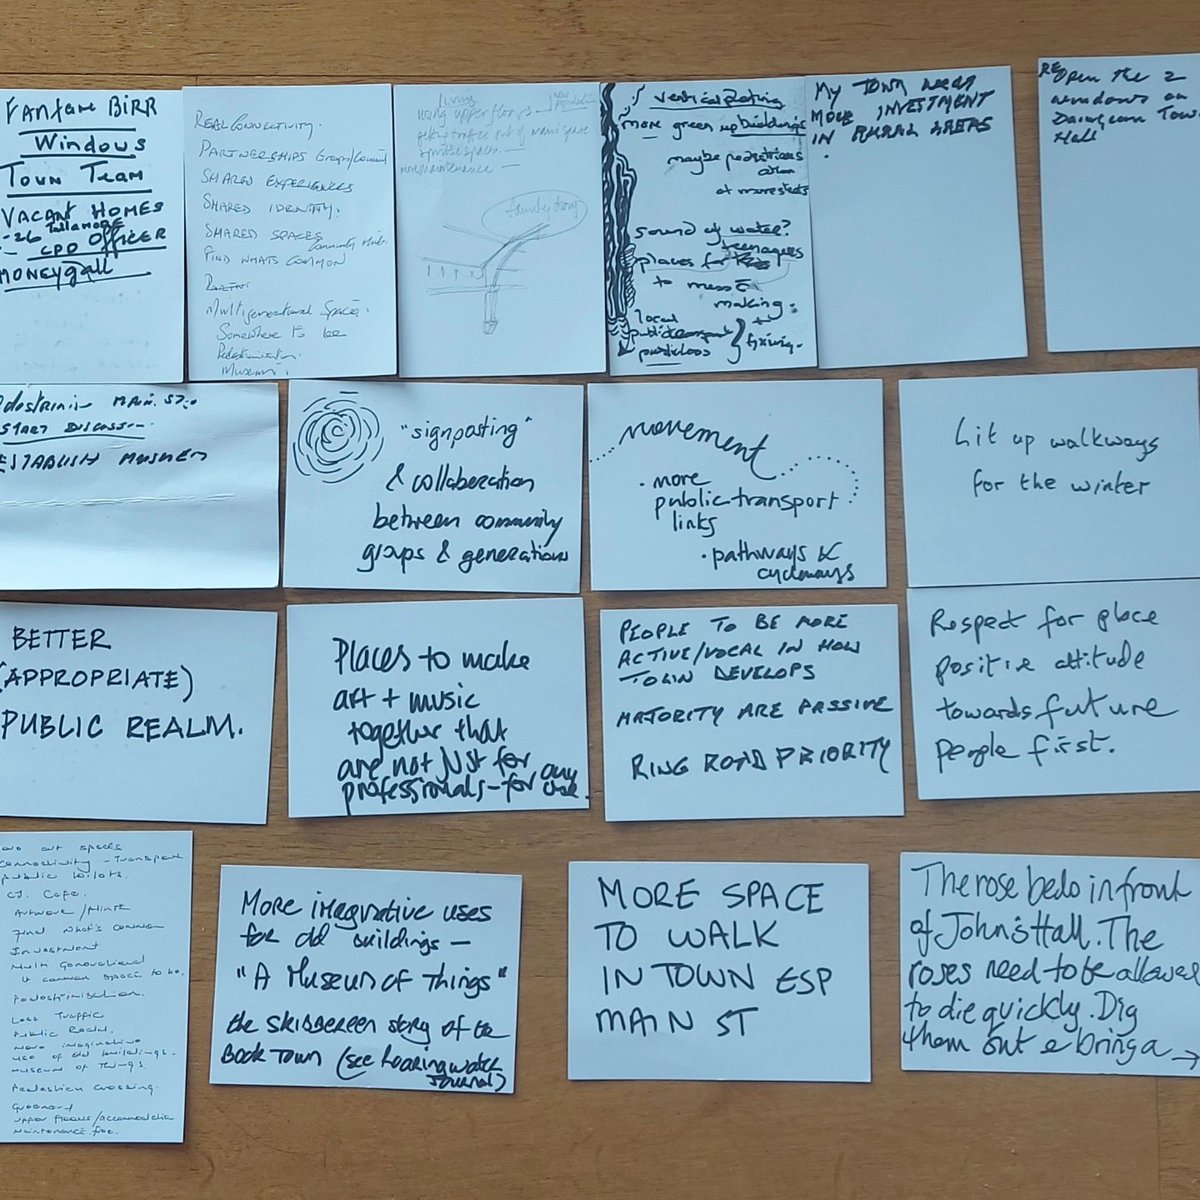 Fanfare BIRR
Windows
Town Team
VACANT HOMES
-26 Tullamore
CPD OFFICER
MONEYgall
REAL CONNECTIVITY.
PARTNERSHIPS Groups/Council
SHARED EXPERIENCES
SHARED IDENTITY.
SHARED SPACES
Community Hubs.
FIND WHATS COMMON
Multigenerational Spaces.
Somewhere to be
Pedestrianisation.
Museum.
living
using upper floors
get traffic out of main space
more maintenance
vertical planting
more green up buildings
maybe pedestrians
at more streets
sound of water?
teenagers
places for
to mess
making
local
public transport
+
fixing.
MY TOWN NEEDS
MORE INVESTMENT
IN RURAL AREAS
REOpen the 2
windows on
Daingean Town
Hall
MAIN ST.
START DISCUSSION.
ESTABLISH MUSEUM
"signposting"
& collaboration
between community
groups & generations
movement
• more
public transport
links
• pathways &
cycleways
Lit up walkways
for the winter
BETTER
(APPROPRIATE)
PUBLIC REALM.
Places to make
art + music
together that
are not just for any
professionals – for one.
PEOPLE TO BE MORE
ACTIVE/VOCAL IN HOW
TOWN DEVELOPS
MAJORITY ARE PASSIVE
RING ROAD PRIORITY
Respect for place
positive attitude
towards future
people first.
art spaces
Connectivity - Transport
public toilets.
Cafe.
Artwork /
Find what's common
Investment
Multi Generational
& common space to be.
Pedestrianisation.
Less Traffic
Public Realm.
More imaginative
use of old buildings.
Museum of Things.
Pedestrian Crossing.
upper floors/accommodation
Maintenance free.
More imaginative uses
for old buildings —
"A Museum of Things"
the SKIBBEREEN story of the
Book Town (see roaring water
Journal)
MORE SPACE
TO WALK
IN TOWN ESP
MAIN ST
The rose beds in front
of John's Hall. The
roses need to be allowed
to die quickly. Dig
them out & bring a →